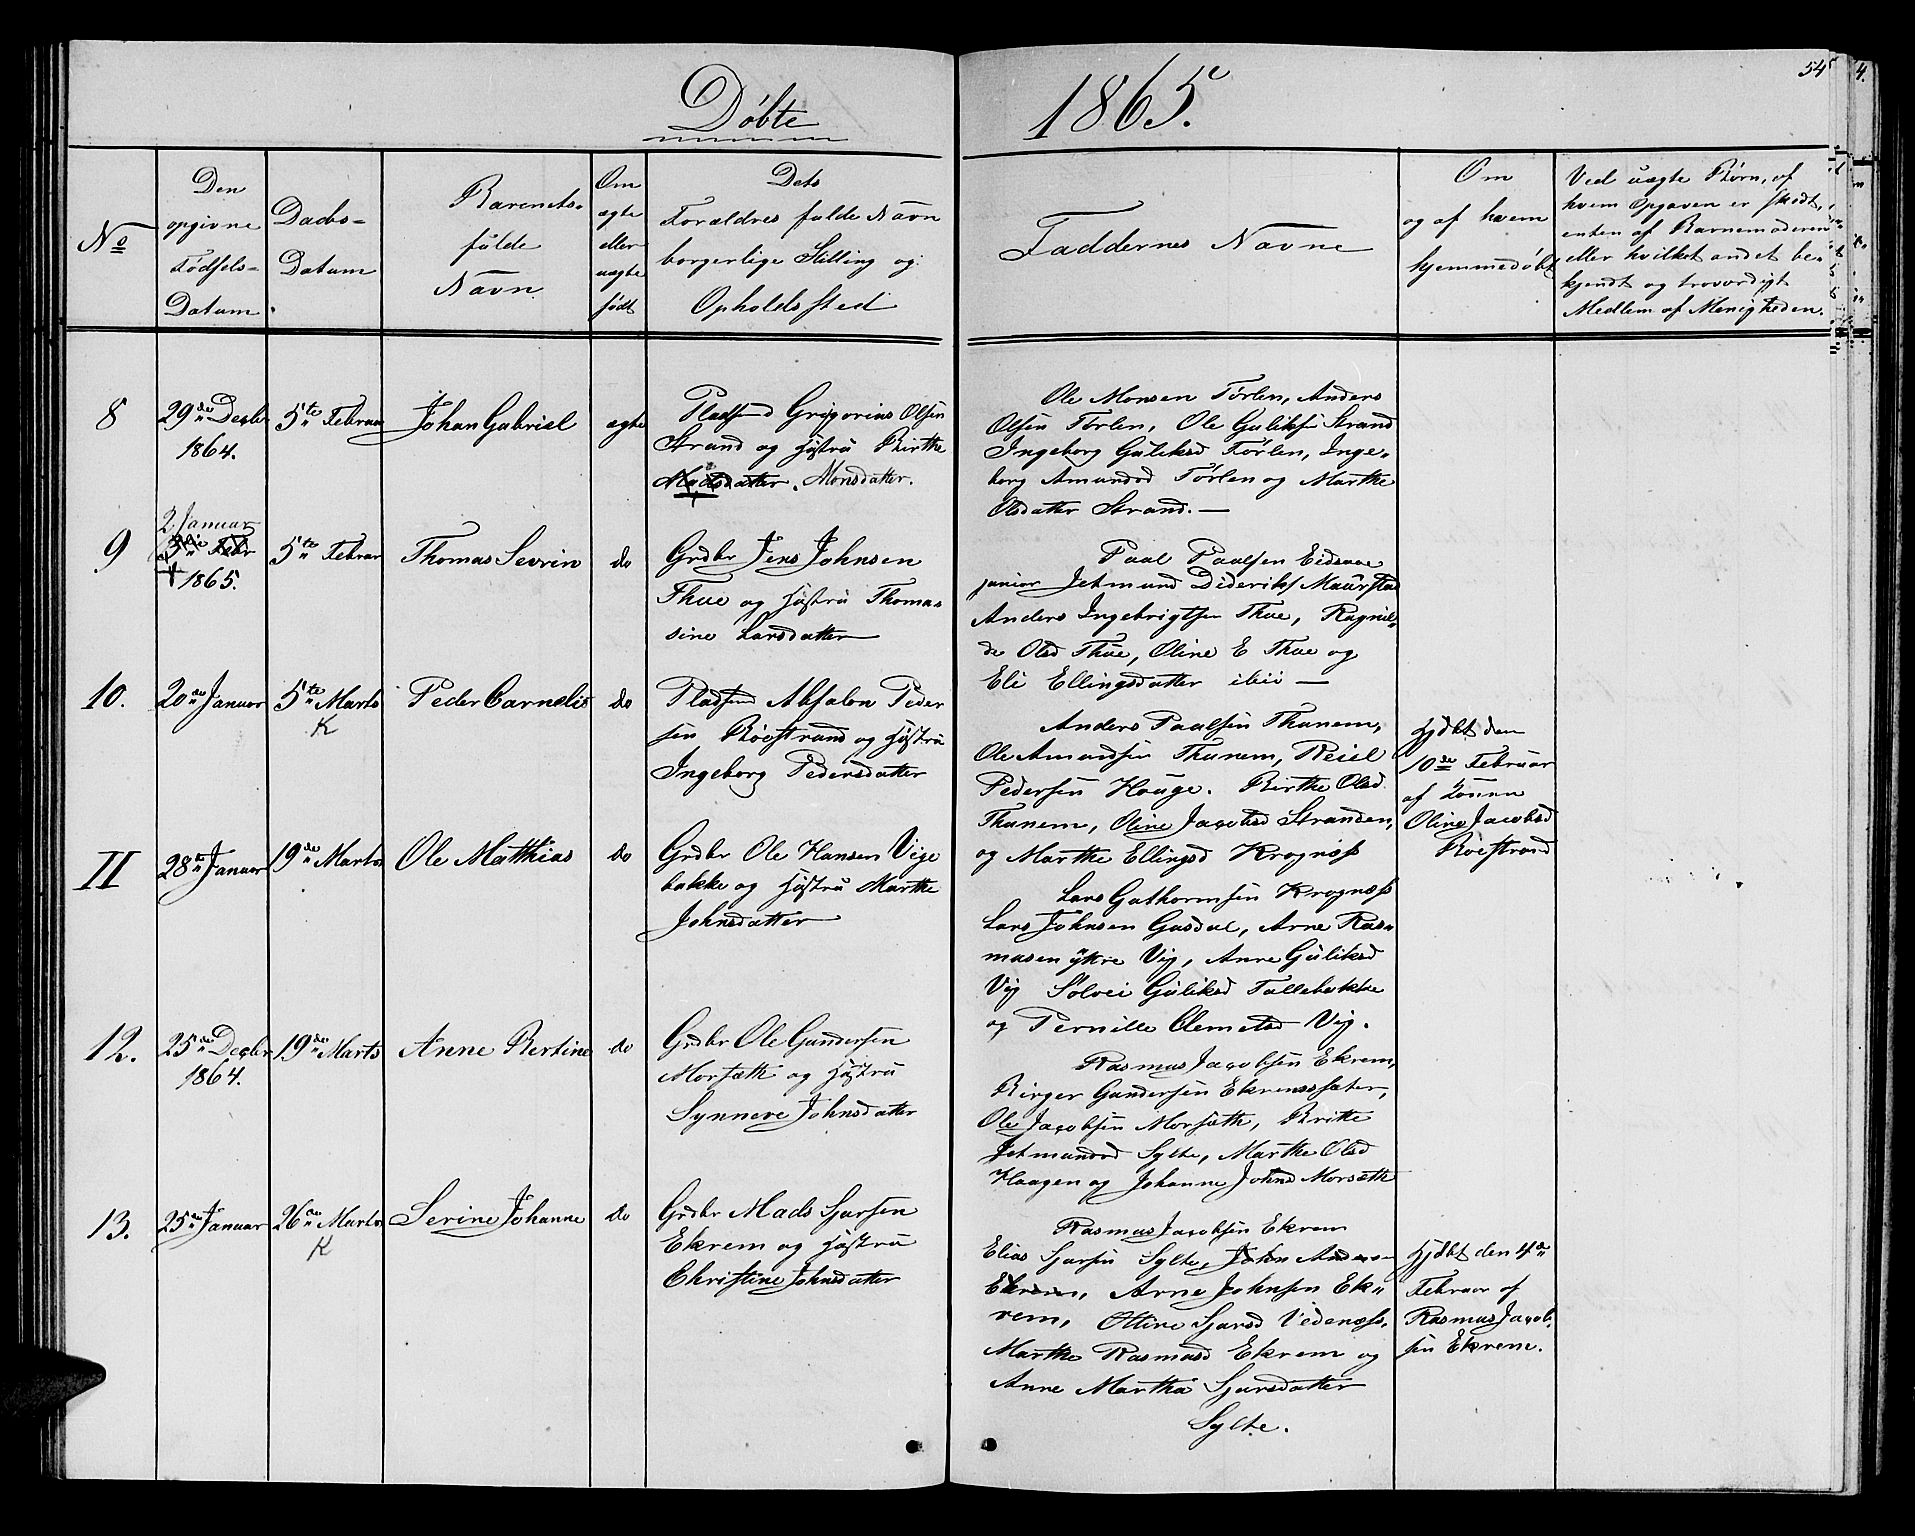 54
Døbte
1865.
No
Den
opgivne
Fødsels-
Datum.
Daabs-
Datum
Barnets
fulde
Navn
Om
ægte
eller
uægte
født
Dets
Forældres fulde Navn
borgerlige Stilling og
Opholdssted
Faddernes Navne
Om
og af hvem
hjemmedøbt
Ved uægte Børn, af
hvem Opgaven er skedt,
enten af Barnemoderen
eller hvilket andet be-
kjendt og troværdigt
Medlem af Menigheden.
8
29de Decbr
1864.
5te Februar
Johan Gabriel
ægte
Pladsmd Grigorius Olsen
Strand og Hustru Birthe
Madsdatter. Monsdatter.
Ole Monsen Førlen, Anders
Olsen Førlen, Ole Guliks. Strand
Ingeborg Guliksd Førlen, Inge-
borg Amundsd Førlen og Marthe
Olsdatter Strand. —
9
2 Januar
Febr
1865.
5te Februar
Thomas Sevrin
do
Grdbr Jens Johnsen
Thue og Hustru Thoma-
sine Larsdatter
Paal Paalsen Eidsaae
junior Jetmund Dideriks. Maurstad
Anders Ingebrigtsen Thue, Ragnil-
de Olsd Thue, Oline E Thue og
Eli Ellingsdatter ibid —
10.
20de Januar
5te Marts
K
Peder Carnelis
do
Pladsmd Absalon Peder
sen Röestrand og Hustru
Ingeborg Pedersdatter
Anders Paalsen Thunem,
Ole Amundsen Thunem, Reiel
Pedersen Hauge. Birthe Olsd
Thunem, Oline Jacobsd Stranden,
og Marthe Ellingsd Krognæss
Hjdbt den
10de Februar
af Konen
Oline Jacobsd
Röestrand
11
28de Januar
19de Marts
Ole Matthias
do
Grdbr Ole Hansen Vige
bakke og Hustru Marthe
Johnsdatter
Lars Guthormsen Krognæss
Lars Johnsen Gusdal, Arne Ras-
musen ytre Vig, Anne Guliksd
Vig Solvei Guliksd Tallebakke
og Pernille Clemetsd Vig.
12.
25de Decbr
1864.
19de Marts
Anne Bertine
do
Grdbr Ole Gundersen
Morsæth og Hustru
Synneve Johnsdatter
Rasmus Jacobsen Ekrem,
Birger Gundersen Ekremssæter,
Ole Jacobsen Morsæth, Brithe
Jetmundsd Sylte, Marthe Olsd
Haagen og Johanne Johnsd Morsæth
13.
25de Januar
26de Marts
K
Serine Johanne
do
Grdbr Mads Sjursen
Ekrem og Hustru
Christine Johnsdatter
Rasmus Jacobsen Ekrem
Elias Sjursen Sylte, John Andersen
Ekrem, Arne Johnsen Ek-
rem, Oline Sjursd Vedenæss,
Marthe Rasmusd Ekrem og
Anne Martha Sjursdatter
Sylte.
Hjdbt den 4de
Februar af
Rasmus Jacob-
sen Ekrem.